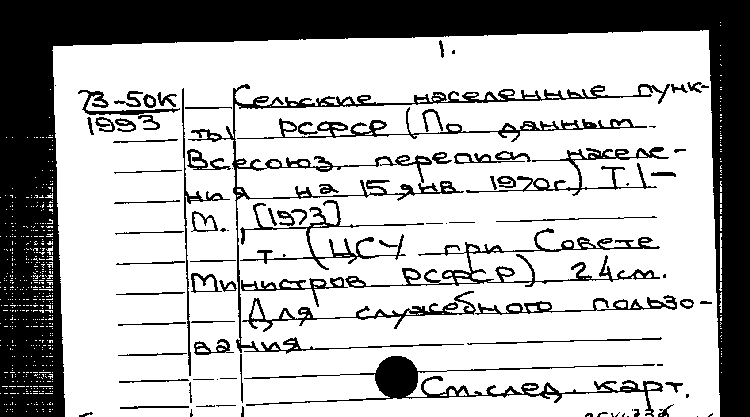 1.
73-50К Сельские населенные пунк-
1993 ты РСФСР (По данным
Всесоюз. переписи населе-
ния на 15 янв. 1970г.) Т.1-
М., [1973].
т. (ЦСУ при Совете
Министров РСФСР). 24см.
Для служебного пользо-
вания.
См.след. карт.